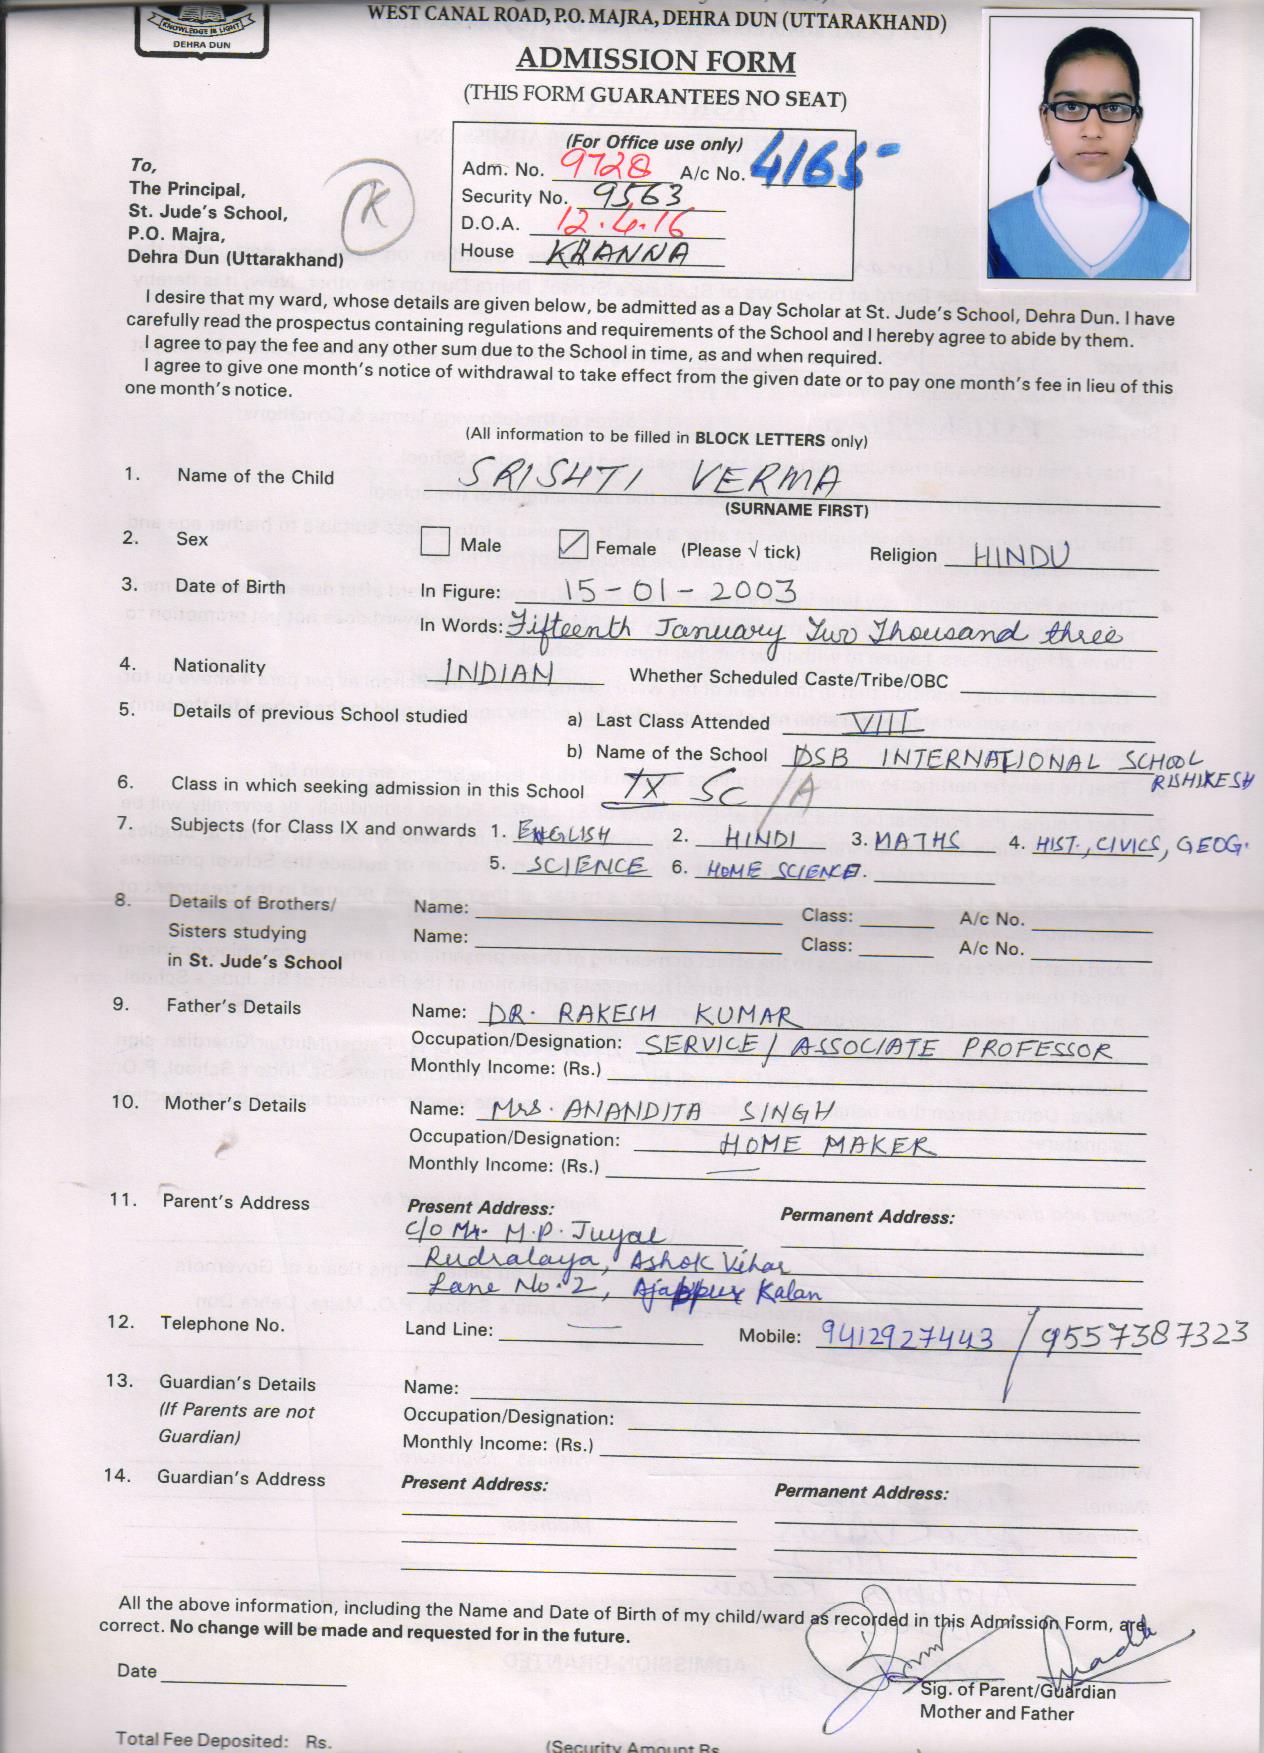 KNOWLEDGE IS LIGHT
DEHRA DUN
WEST CANAL ROAD, P.O. MAJRA, DEHRA DUN (UTTARAKHAND)
ADMISSION FORM
(THIS FORM GUARANTEES NO SEAT)
(For Office use only)
Adm. No. 9728 A/c No. 4165
Security No. 9563
D.O.A. 12.4.16
House KHANNA
To,
The Principal,
St. Jude's School,
P.O. Majra,
Dehra Dun (Uttarakhand)
K
I desire that my ward, whose details are given below, be admitted as a Day Scholar at St. Jude's School, Dehra Dun. I have
carefully read the prospectus containing regulations and requirements of the School and I hereby agree to abide by them.
I agree to pay the fee and any other sum due to the School in time, as and when required.
I agree to give one month's notice of withdrawal to take effect from the given date or to pay one month's fee in lieu of this
one month's notice.
(All information to be filled in BLOCK LETTERS only)
1. Name of the Child SRISHTI VERMA
(SURNAME FIRST)
2. Sex Male Female (Please √ tick) Religion HINDU
3. Date of Birth In Figure: 15-01-2003
In Words: Fifteenth January Two Thousand three
4. Nationality INDIAN Whether Scheduled Caste/Tribe/OBC
5. Details of previous School studied a) Last Class Attended VIII
b) Name of the School DSB INTERNATIONAL SCHOOL
RISHIKESH
6. Class in which seeking admission in this School IX SC / A
7. Subjects (for Class IX and onwards 1. ENGLISH 2. HINDI 3. MATHS 4. HIST., CIVICS, GEOG.
5. SCIENCE 6. HOME SCIENCE 7.
8. Details of Brothers/ Name: Class: A/c No.
Sisters studying Name: Class: A/c No.
in St. Jude's School
9. Father's Details Name: DR. RAKESH KUMAR
Occupation/Designation: SERVICE / ASSOCIATE PROFESSOR
Monthly Income: (Rs.)
10. Mother's Details Name: Mrs. ANANDITA SINGH
Occupation/Designation: HOME MAKER
Monthly Income: (Rs.) —
11. Parent's Address Present Address: Permanent Address:
C/o Mr. M.P. Juyal
Rudralaya, Ashok Vihar
Lane No. 2, Ajabpur Kalan
12. Telephone No. Land Line: — Mobile: 9412927443 / 9557387323
13. Guardian's Details Name:
(If Parents are not Occupation/Designation:
Guardian) Monthly Income: (Rs.)
14. Guardian's Address Present Address: Permanent Address:
All the above information, including the Name and Date of Birth of my child/ward as recorded in this Admission Form, are
correct. No change will be made and requested for in the future.
Date
Sig. of Parent/Guardian
Mother and Father
Total Fee Deposited: Rs. (Security Amount Rs.